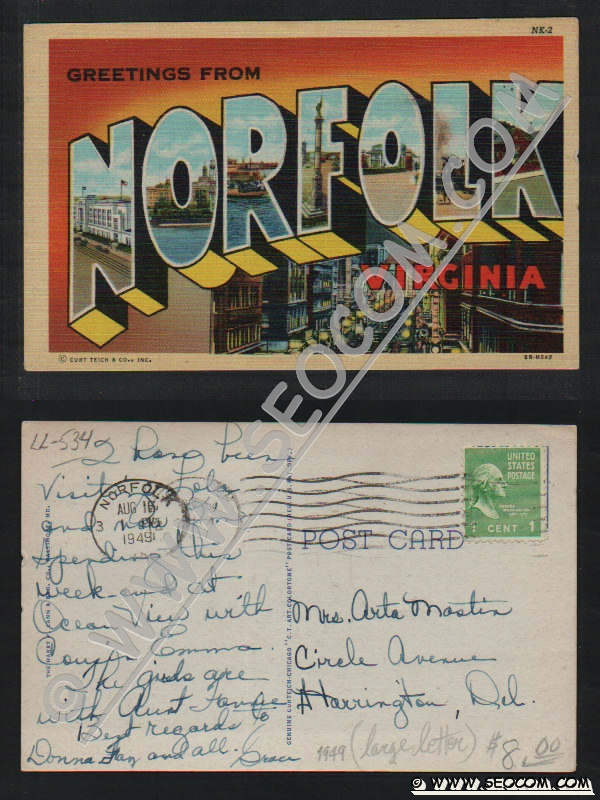 NK-2
GREETINGS FROM
NORFOLK
VIRGINIA
© CURT TEICH & CO., INC.
© WWW.SEOCOM.COM
LL-534
I have been
Visiting
and now
spending this
week-end at
Ocean View with
Cousin Emma.
The girls are
with Aunt Fannie
Best regards to
Donna Fay and all. Grace
NORFOLK
AUG 16
3 PM
1949
UNITED
STATES
POSTAGE
1 CENT 1
POST CARD
GENUINE CURTEICH-CHICAGO "C.T. ART-COLORTONE" POST CARD
Mrs. Arta Mastin
Circle Avenue
Harrington, Del.
1949 (large letter) $8.00
© www.seocom.com